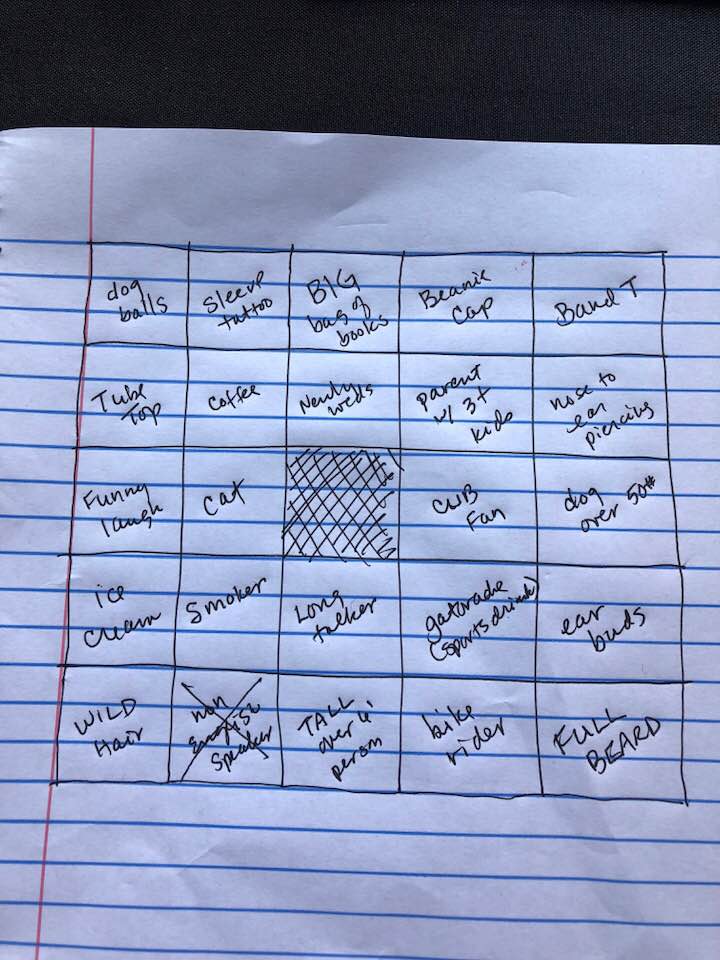 dog
balls
Sleeve
tattoo
BIG
bag of
books
Beanie
Cap
Band T
Tube
Top
coffee
Newly
weds
parent
w/ 3+
kids
nose to
ear
piercing
Funny
laugh
Cat
CUB
Fan
dog
over 50#
ice
cream
Smoker
Long
talker
gatorade
(sports drink)
ear
buds
WILD
Hair
non
English
Speaker
TALL
over 6'
person
bike
rider
FULL
BEARD